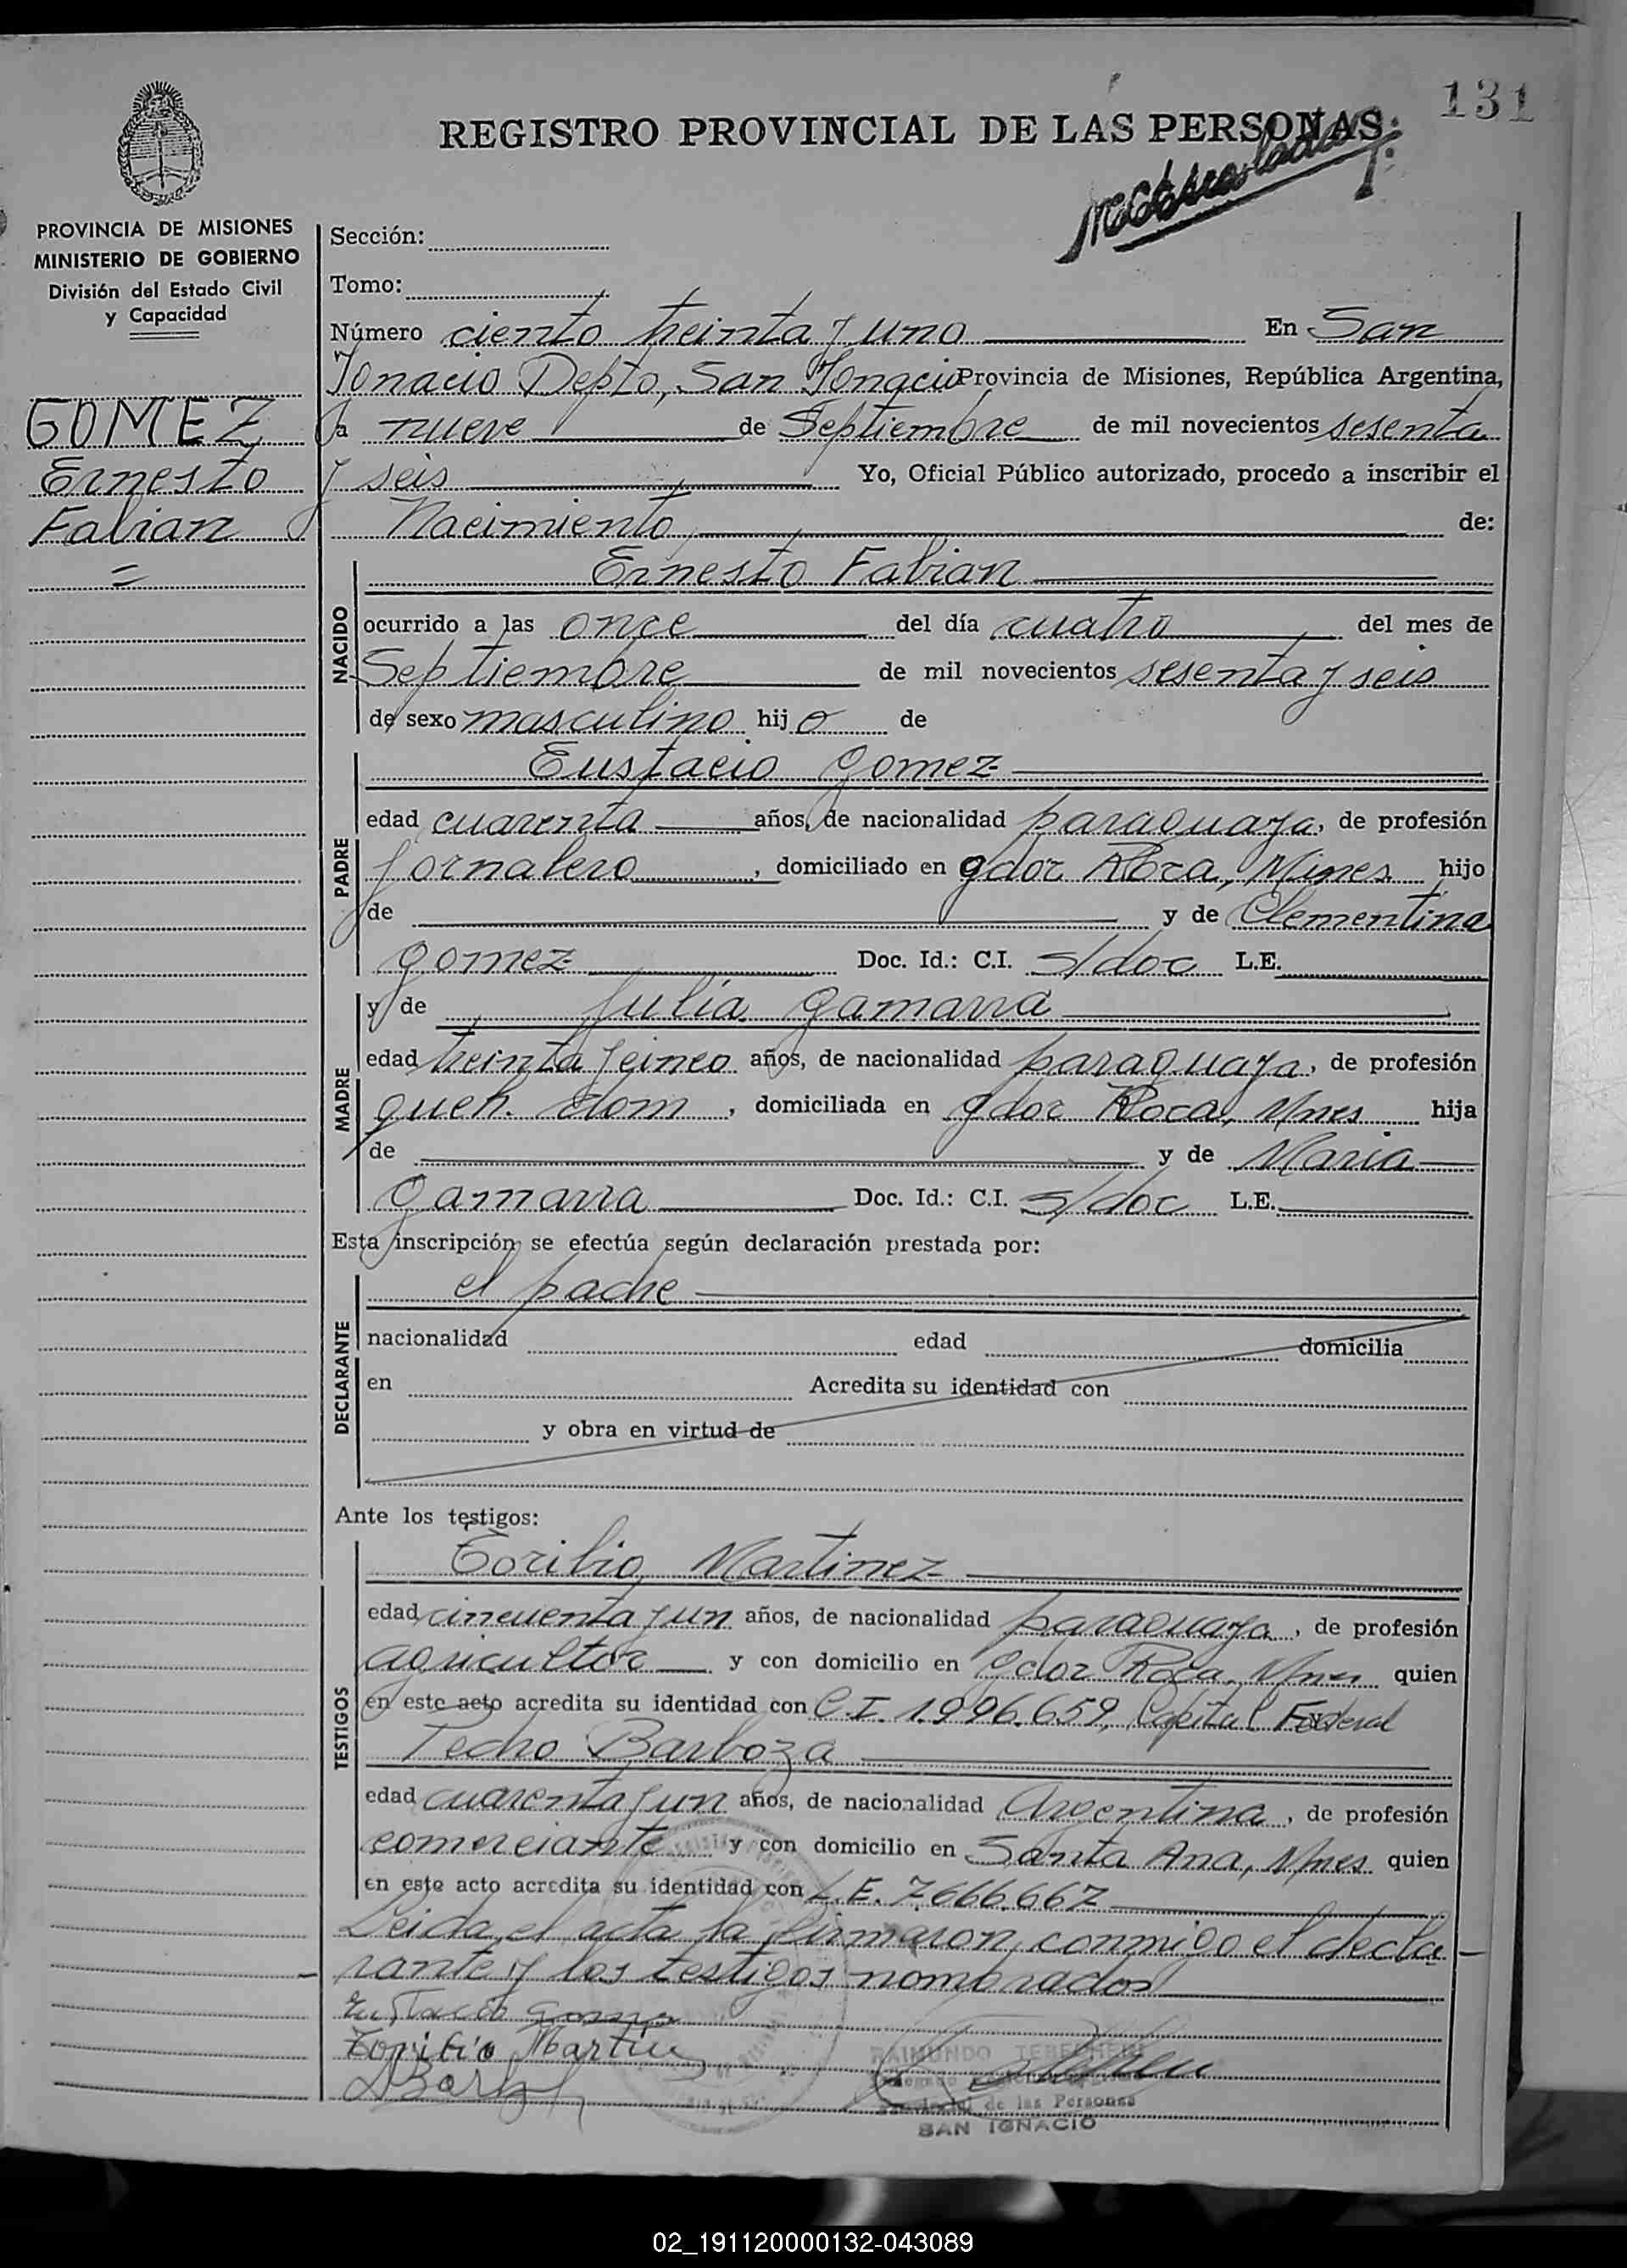 131
REGISTRO PROVINCIAL DE LAS PERSONAS
PROVINCIA DE MISIONES
MINISTERIO DE GOBIERNO
División del Estado Civil
y Capacidad
GOMEZ
Ernesto
Fabian
=
Sección:
Tomo:
Número ciento treinta y uno En San
Ignacio Depto, San Ignacio Provincia de Misiones, República Argentina,
a nueve de Septiembre de mil novecientos sesenta
y seis Yo, Oficial Público autorizado, procedo a inscribir el
Nacimiento de:
NACIDO
Ernesto Fabian
ocurrido a las once del día cuatro del mes de
Septiembre de mil novecientos sesenta y seis
de sexo masculino hijo de
PADRE
Eustacio Gomez
edad cuarenta años, de nacionalidad paraguaya, de profesión
Jornalero, domiciliado en gdor Roca, Mnes hijo
de y de Clementina
gomez Doc. Id.: C.I. s/doc L.E.
MADRE
y de Julia gamarra
edad treinta y cinco años, de nacionalidad paraguaya, de profesión
queh. dom, domiciliada en gdor Roca, Mnes hija
de y de Maria
gamarra Doc. Id.: C.I. s/doc L.E.
Esta inscripción se efectúa según declaración prestada por:
DECLARANTE
el padre
nacionalidad edad domicilia
en Acredita su identidad con
y obra en virtud de
Ante los testigos:
TESTIGOS
Toribio Martinez
edad cincuenta y un años, de nacionalidad paraguaya, de profesión
agricultor y con domicilio en gdor Roca, Mnes quien
en este acto acredita su identidad con C.I. 1.996.659, Capital Federal
Pedro Barboza
edad cuarenta y un años, de nacionalidad Argentina, de profesión
comerciante y con domicilio en Santa Ana, Mnes quien
en este acto acredita su identidad con L.E. 7.666.667
Leida el acta la firmaron conmigo el decla-
rante y los testigos nombrados
Eustacio Gomez
Toribio Martinez
RAIMUNDO
de las Personas
SAN IGNACIO
02_191120000132-043089